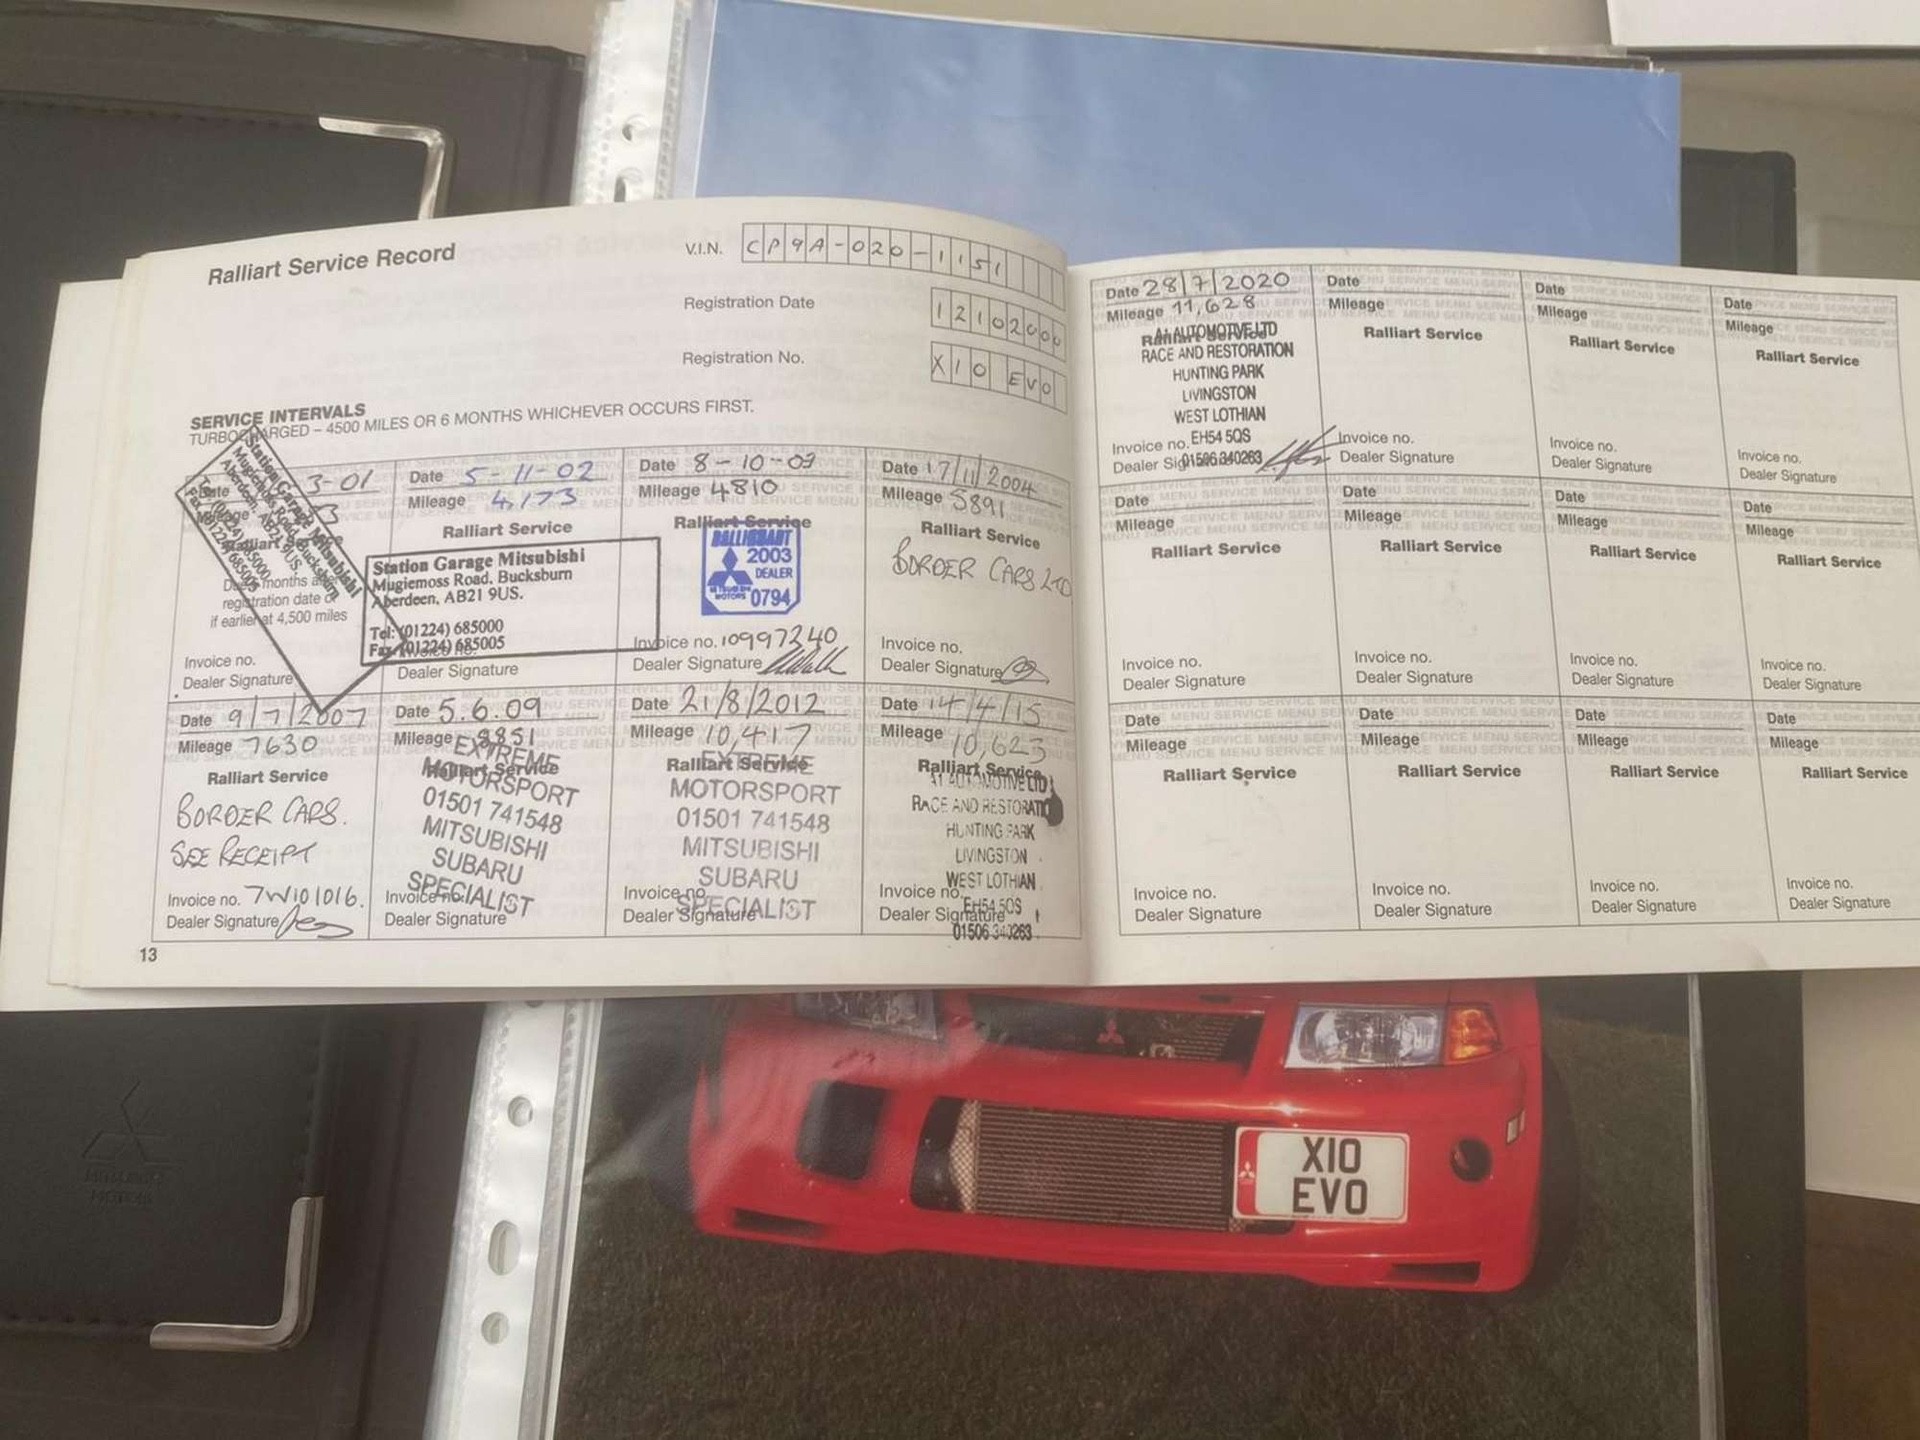 Ralliart Service Record
V.I.N. CP9A-020-1151
Registration Date 12102000
Registration No. X10 EVO
SERVICE INTERVALS
TURBOCHARGED – 4500 MILES OR 6 MONTHS WHICHEVER OCCURS FIRST.
Date 3-01
Mileage
Ralliart Service
months
registration date or
if earlier at 4,500 miles
Station Garage Mitsubishi
Mugiemoss Road, Bucksburn
Aberdeen, AB21 9US.
Tel: (01224) 685000
Fax: (01224) 685005
Invoice no.
Dealer Signature
Date 5-11-02
Mileage 4,173
Ralliart Service
Station Garage Mitsubishi
Mugiemoss Road, Bucksburn
Aberdeen, AB21 9US.
Tel: (01224) 685000
Fax: (01224) 685005
Invoice no.
Dealer Signature
Date 8-10-03
Mileage 4810
Ralliart Service
RALLIART
2003
DEALER
MITSUBISHI
MOTORS 0794
Invoice no. 10997340
Dealer Signature
Date 17/11/2004
Mileage 5891
Ralliart Service
BORDER CARS LTD
Invoice no.
Dealer Signature
Date 9/7/2007
Mileage 7630
Ralliart Service
BORDER CARS.
SEE RECEIPT
Invoice no. 7W101016.
Dealer Signature
Date 5.6.09
Mileage 8851
Ralliart Service
EXTREME
MOTORSPORT
01501 741548
MITSUBISHI
SUBARU
SPECIALIST
Invoice no.
Dealer Signature
Date 21/8/2012
Mileage 10,417
Ralliart Service
EXTREME
MOTORSPORT
01501 741548
MITSUBISHI
SUBARU
SPECIALIST
Invoice no.
Dealer Signature
Date 14/4/15
Mileage 10,623
Ralliart Service
A1 AUTOMOTIVE LTD
RACE AND RESTORATION
HUNTING PARK
LIVINGSTON
WEST LOTHIAN
EH54 5QS
01506 340263
Invoice no.
Dealer Signature
13
Date 28/7/2020
Mileage 11,628
Ralliart Service
A1 AUTOMOTIVE LTD
RACE AND RESTORATION
HUNTING PARK
LIVINGSTON
WEST LOTHIAN
EH54 5QS
01506 340263
Invoice no.
Dealer Signature
Date
Mileage
Ralliart Service
Invoice no.
Dealer Signature
Date
Mileage
Ralliart Service
Invoice no.
Dealer Signature
Date
Mileage
Ralliart Service
Invoice no.
Dealer Signature
Date
Mileage
Ralliart Service
Invoice no.
Dealer Signature
Date
Mileage
Ralliart Service
Invoice no.
Dealer Signature
Date
Mileage
Ralliart Service
Invoice no.
Dealer Signature
Date
Mileage
Ralliart Service
Invoice no.
Dealer Signature
Date
Mileage
Ralliart Service
Invoice no.
Dealer Signature
Date
Mileage
Ralliart Service
Invoice no.
Dealer Signature
Date
Mileage
Ralliart Service
Invoice no.
Dealer Signature
Date
Mileage
Ralliart Service
Invoice no.
Dealer Signature
X10
EVO
MITSUBISHI
MOTORS